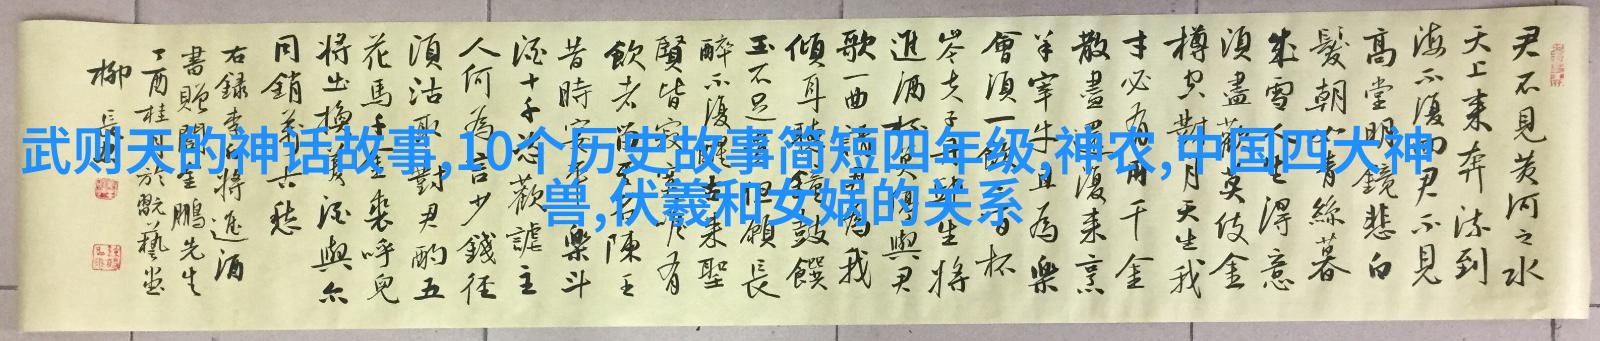 武则天的神话故事,10个历史故事简短四年级,神农,中国四大神
兽,伏羲和女娲的关系
君不見黄河之水
天上来奔流到
海不復回君不見
高堂明鏡悲白
髮朝如青絲暮
成雪人生得意
須盡歡莫使金
樽空對月天生我
才必有用千金
散盡還復来烹
羊宰牛且為樂
會須一飲三百杯
岑夫子丹丘生將
進酒杯莫停與君
歌一曲請君為我
傾耳聽鐘鼓饌
玉不足貴但願長
醉不復醒古来聖
賢皆寂寞唯有
飲者留其名陳王
昔時宴平樂斗
酒十千恣歡謔主
人何為言少錢径
須沽取對君酌五
花馬千金裘呼兒
將出換美酒與尔
同銷萬古愁
右録李白將進酒
書贈金鵬先生
丁酉桂月於翫藝堂
柳長